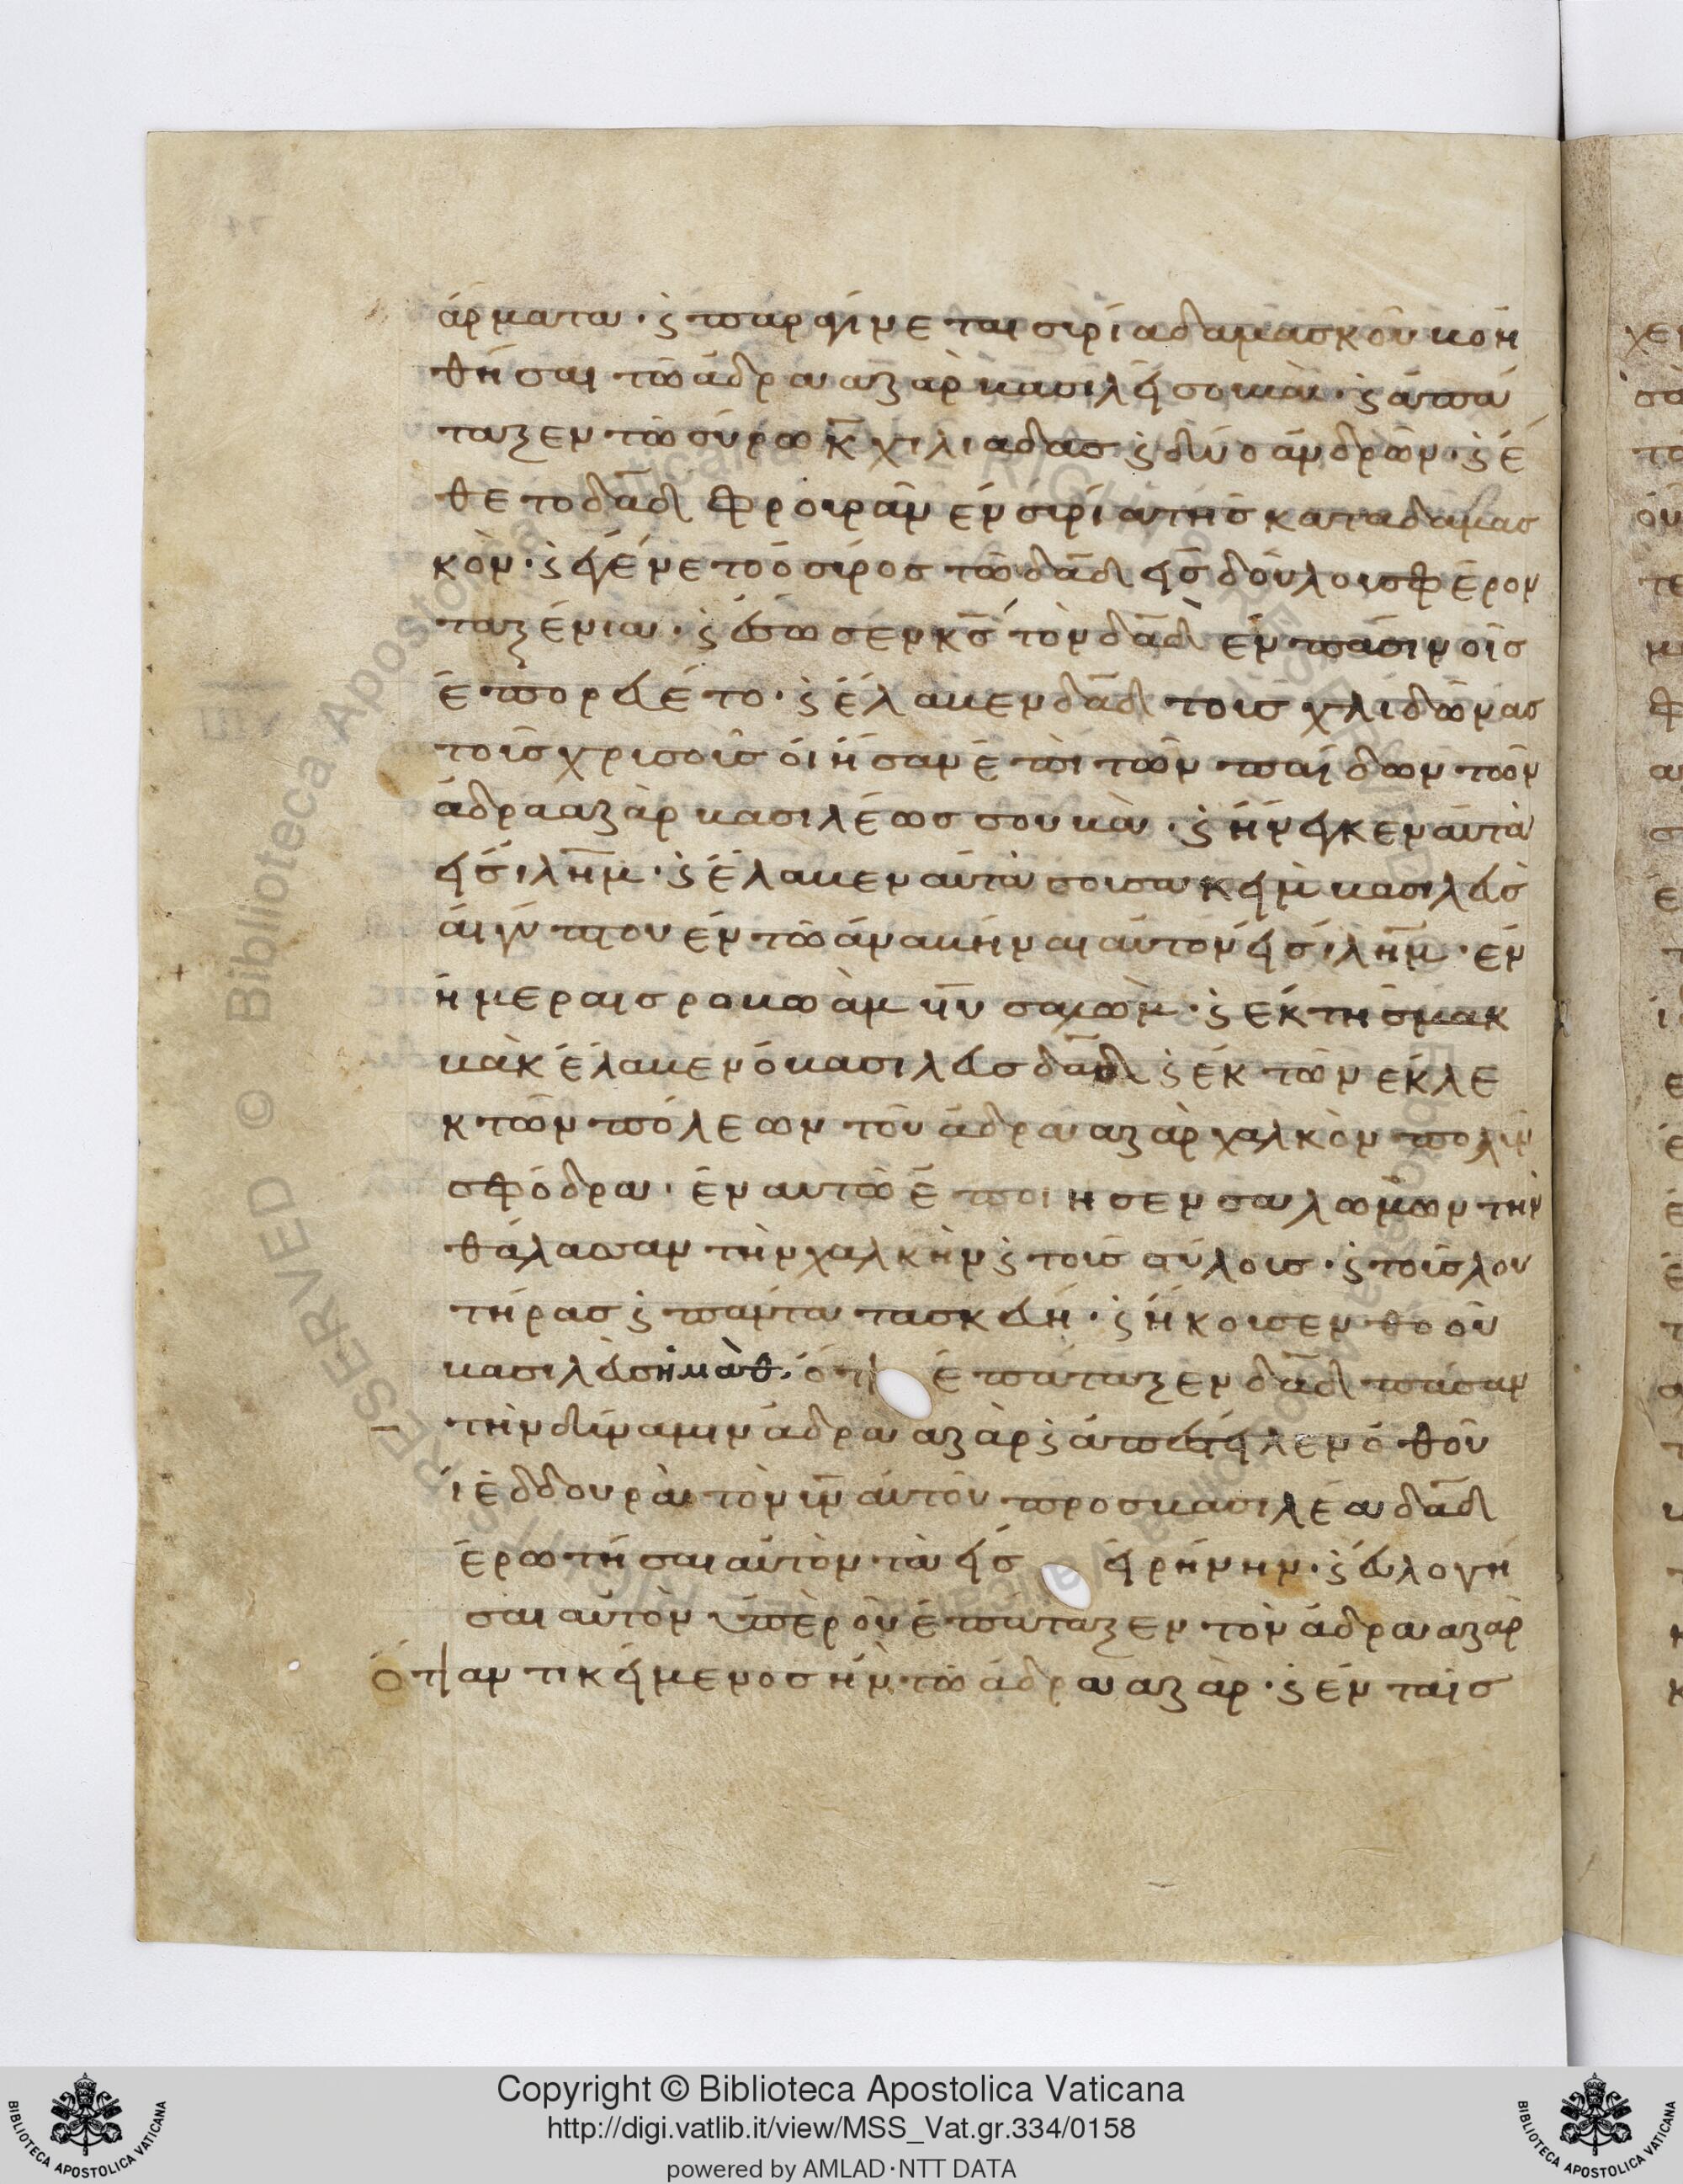 ἅρματα· ϛ παραγίνεται συρία δαμασκοῦ βοη
θῆσαι τῶ ἀδρααζὰρ βασιλεῖ σουβὰ· ϛ ἐπά
ταξεν τῶ σύρω κ̅ χιλιάδας ϛ δύο ἀνδρῶν· ϛ ἔ
θετο δα̅δ φρουρὰν ἐν συρία τῆς κατὰ δαμασ
κόν· ϛ ἐγένετο ὁ σύρος τῶ δα̅δ εἰς δούλους φέρον
τας ξένια· ϛ ἔσωσεν κ̅ς τὸν δα̅δ ἐν πᾶσιν οἷς
ἐπορεύετο· ϛ ἔλαβεν δα̅δ τοὺς χλιδῶνας
τοὺς χρυσοῦς οἳ ἦσαν ἐπὶ τῶν παίδων τῶν
ἀδρααζὰρ βασιλέως σουβὰ· ϛ ἤνεγκεν αὐτὰ
εἰς ἰλη̅μ· ϛ ἔλαβεν αὐτὰ σουσακεὶμ βασιλεὺς
αἰγύπτου ἐν τῶ ἀναβῆναι αὐτὸν εἰς ἰλη̅μ· ἐν
ἡμέραις ροβωὰμ υ̅υ σολομὼν· ϛ ἐκ τῆς μακ
βὰκ ἔλαβεν ὁ βασιλεὺς δα̅δ ϛ ἐκ τῶν ἐκλε
κτῶν πόλεων τοῦ ἀδρααζὰρ χαλκὸν πολὺν
σφόδρα· ἐν αὐτῶ ἐποίησεν σαλωμὼν τὴν
θάλασσαν τὴν χαλκὴν ϛ τοὺς στύλους· ϛ τοὺς λου
τῆρας ϛ πάντα τὰ σκεύη· ϛ ἤκουσεν θοοῦ
βασιλεὺς ἠμὰθ· ὅτι ἐπάταξεν δα̅δ πᾶσαν
τὴν δύναμιν ἀδρααζὰρ ϛ ἀπέστειλεν ὁ θοῦ
ἰεδδουρὰν τὸν υ̅ν αὐτοῦ πρὸς βασιλέα δα̅δ
ἐρωτῆσαι αὐτὸν τὰ εἰς εἰρήνην· ϛ εὐλογῆ
σαι αὐτὸν ὑπὲρ οὗ ἐπάταξεν τὸν ἀδρααζὰρ
ὅτι ἀντικείμενος ἦν τῶ ἀδρααζὰρ· ϛ ἐν ταῖς
Copyright © Biblioteca Apostolica Vaticana
http://digi.vatlib.it/view/MSS_Vat.gr.334/0158
powered by AMLAD·NTT DATA